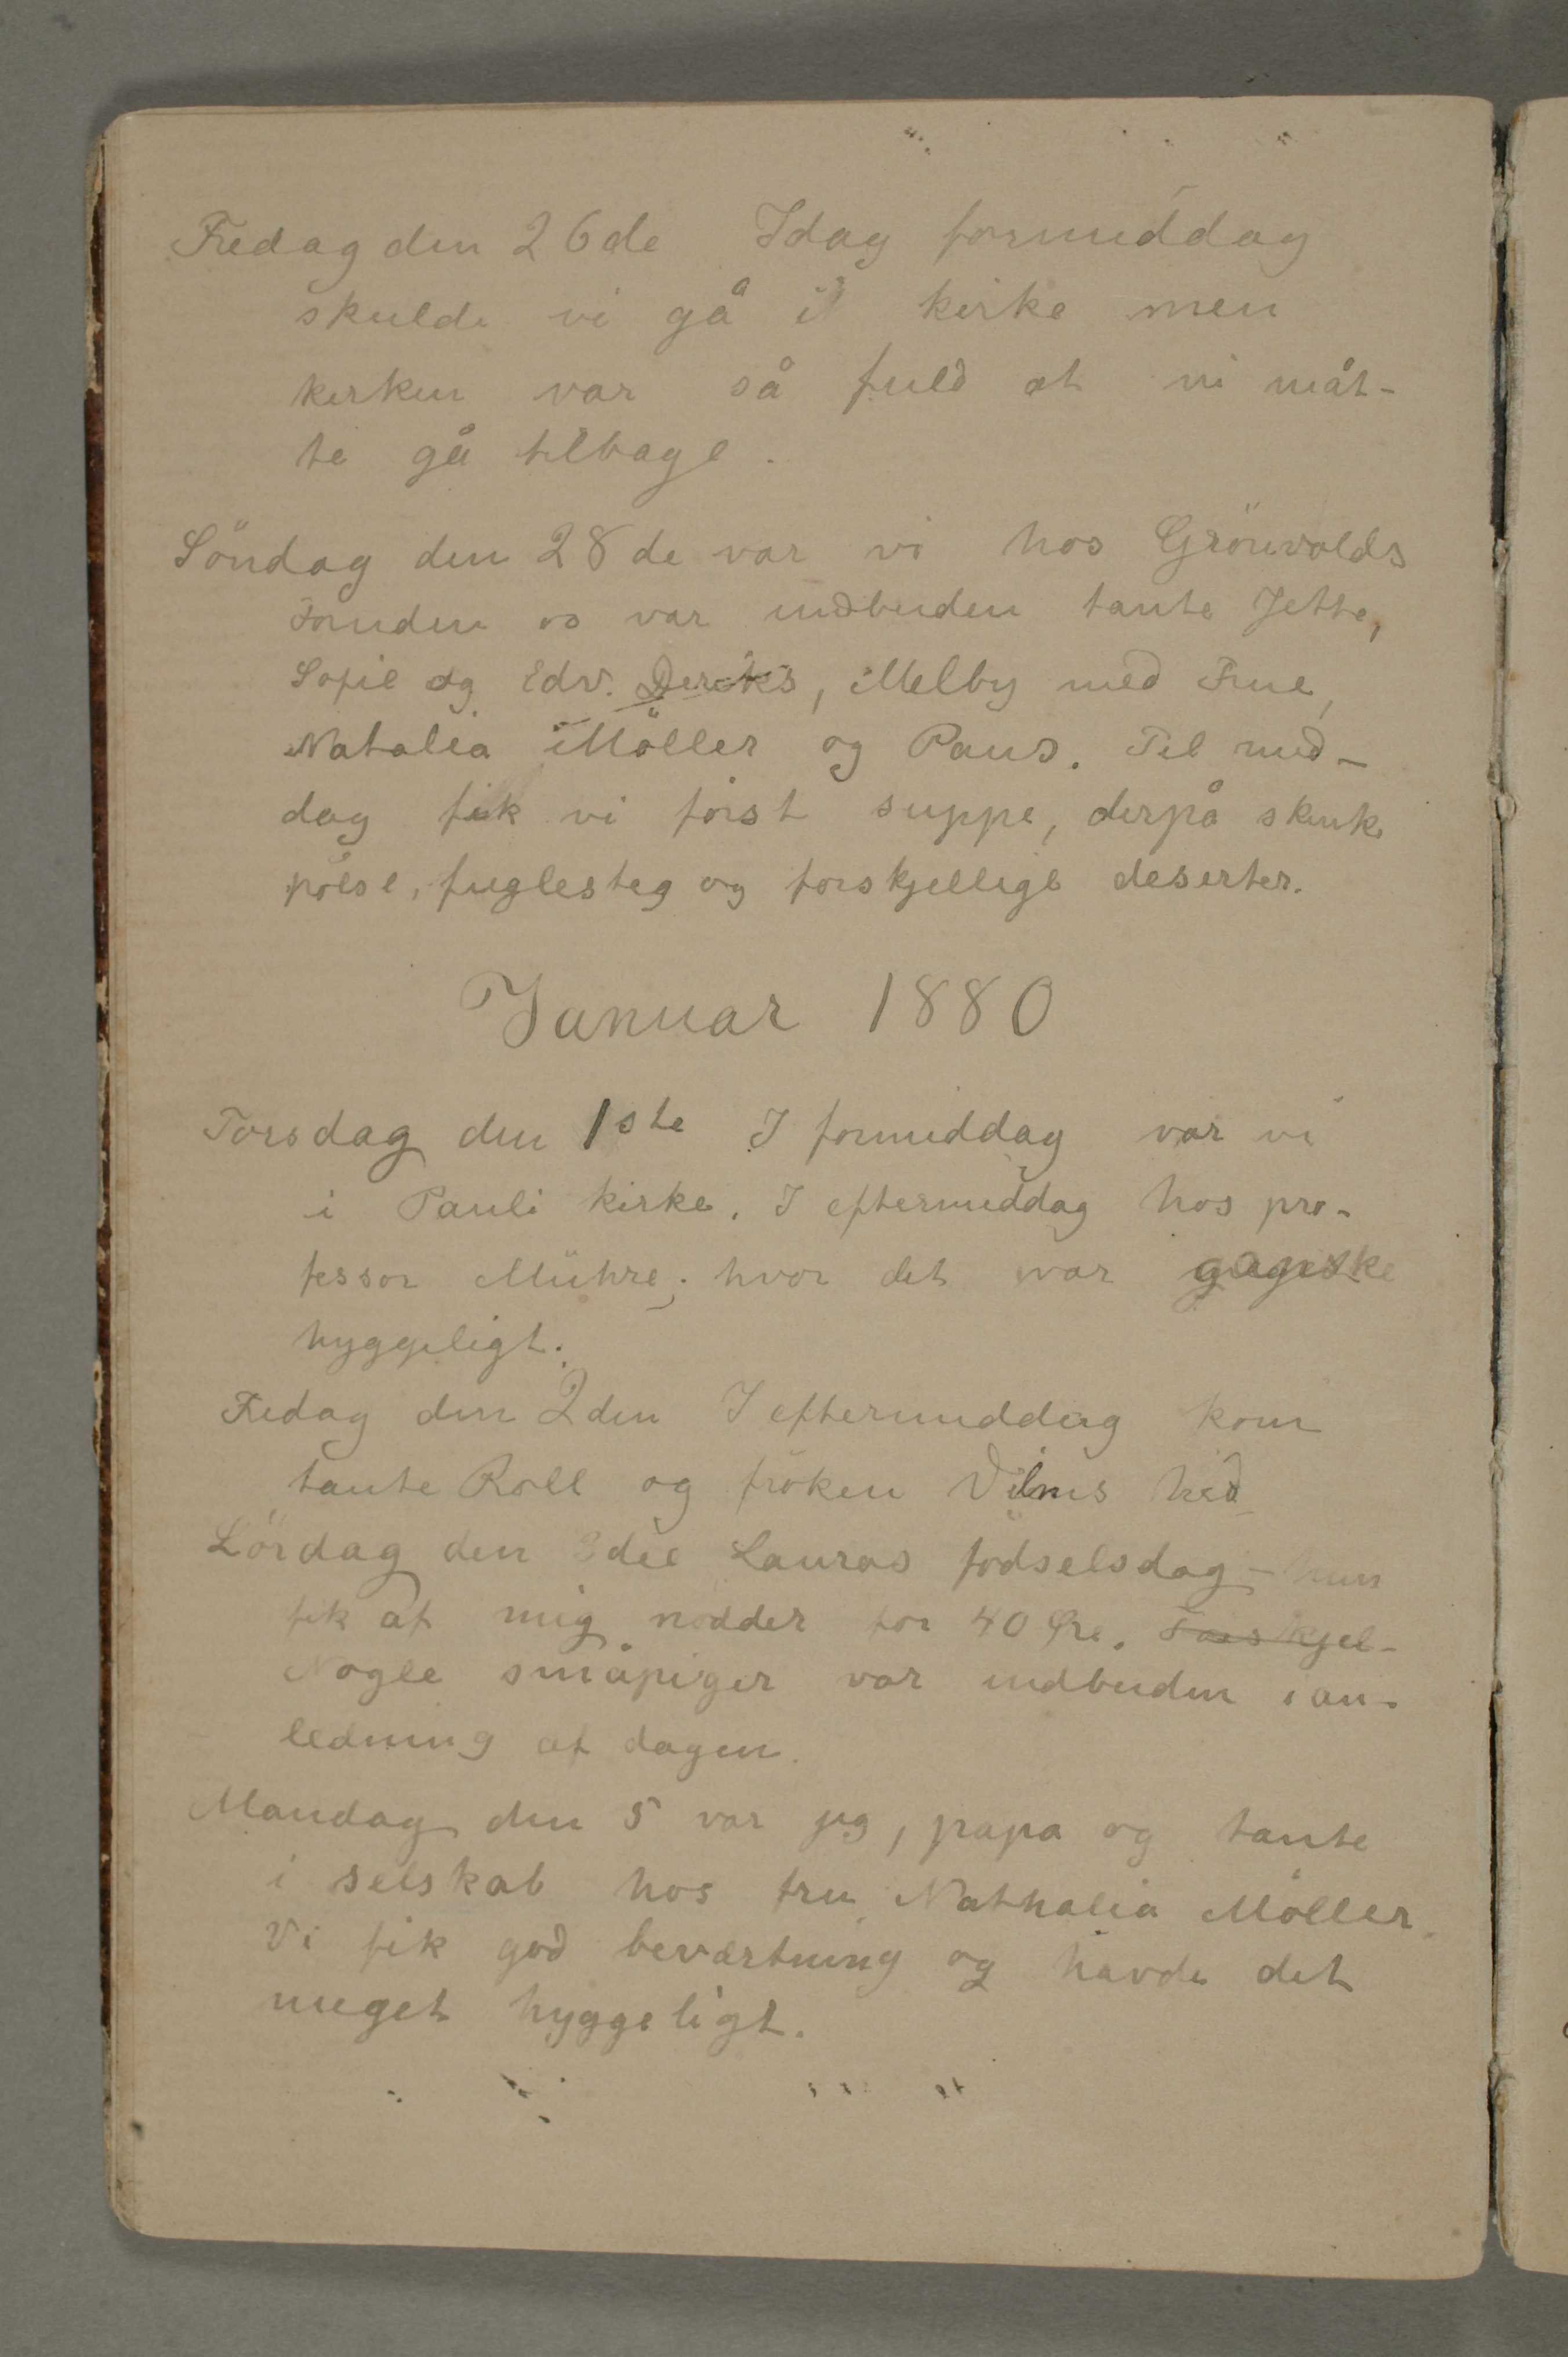 Fredag den 26de Idag formiddag
skulde vi gå i kirke men
kirken var så fuld at vi måt-
te gå tilbage.
Söndag den 28de var vi hos Grönvolds
Foruden os var indbuden tante Jette,
Sofie og Edv. Dircks, Melby med Frue,
Natalia Möller og Paus. Til mid-
dag fik vi först suppe, derpå skinke
pölse, fuglesteg og forskjellige deserter.
Januar 1880
Torsdag den 1ste I formiddag var vi
i Pauli kirke. I eftermiddag hos pro-
fessor Mühre; hvor det var ganske
hyggeligt.
Fredag den 2den I eftermiddag kom
tante Roll og fröken Vilms hid
Lördag den 3die Lauras födselsdag – hun
fik af mig nödder for 40 Øre. Forskjel-
Nogle småpiger var indbuden i an-
ledning af dagen.
Mandag den 5 var jeg, papa og tante
i selskab hos fru Nathalia Möller.
Vi fik god beværtning og havde det
meget hyggeligt.